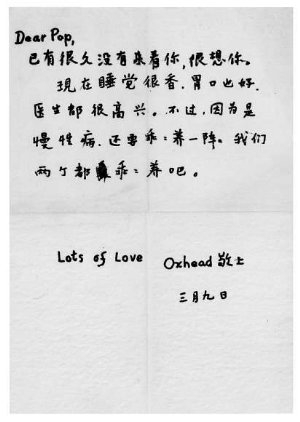 Dear Pop,
已有很久没有来看你，很想你。
现在睡觉很香，胃口也好．
医生都很高兴。不过，因为是
慢性病，还要乖:养一阵。我们
两个都乖:养吧。
Lots of Love Oxhead 敬上
三月九日